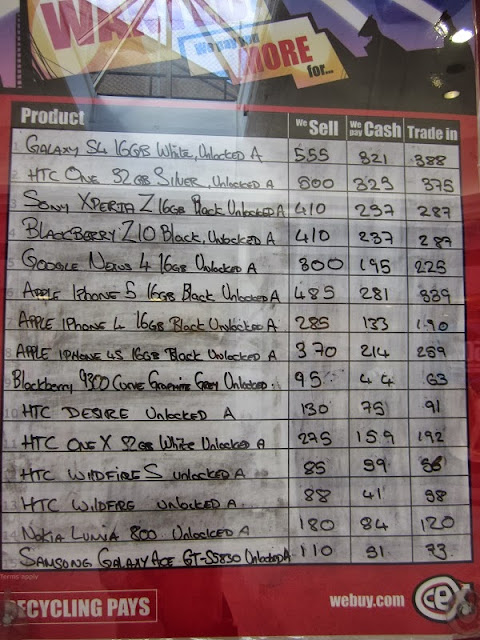 We pay you
MORE
for...
Product We Sell We pay Cash Trade in
1 GALAXY S4 16GB White, Unlocked A 555 321 388
2 HTC ONE 32GB SILVER, Unlocked A 500 375
3 SONY XPERIA Z 16GB Black Unlocked A 410 237 287
4 BLACKBERRY Z10 Black, Unlocked A 410 237 287
5 GOOGLE NEXUS 4 16GB Unlocked A 300 195 225
6 APPLE IPHONE 5 16GB Black Unlocked A 485 281 339
APPLE IPHONE 4 16GB Black Unlocked A 285 133 190
8 APPLE IPHONE 4S 16GB Black Unlocked A 370 214 259
9 Blackberry 9300 CURVE GRAPHITE GREY Unlocked. 95 44 63
10 HTC DESIRE Unlocked A 130 75 91
11 HTC ONE X 32GB White Unlocked A 275 159 192
12 HTC WILDFIRE S unlocked A 85
13 HTC WILDFIRE unlocked A. 88 41
14 NOKIA LUMIA 800 Unlocked A 180 84 120
SAMSUNG GALAXY ACE GT-S5830 Unlocked A 110 51 73
Terms apply
RECYCLING PAYS
webuy.com
cex